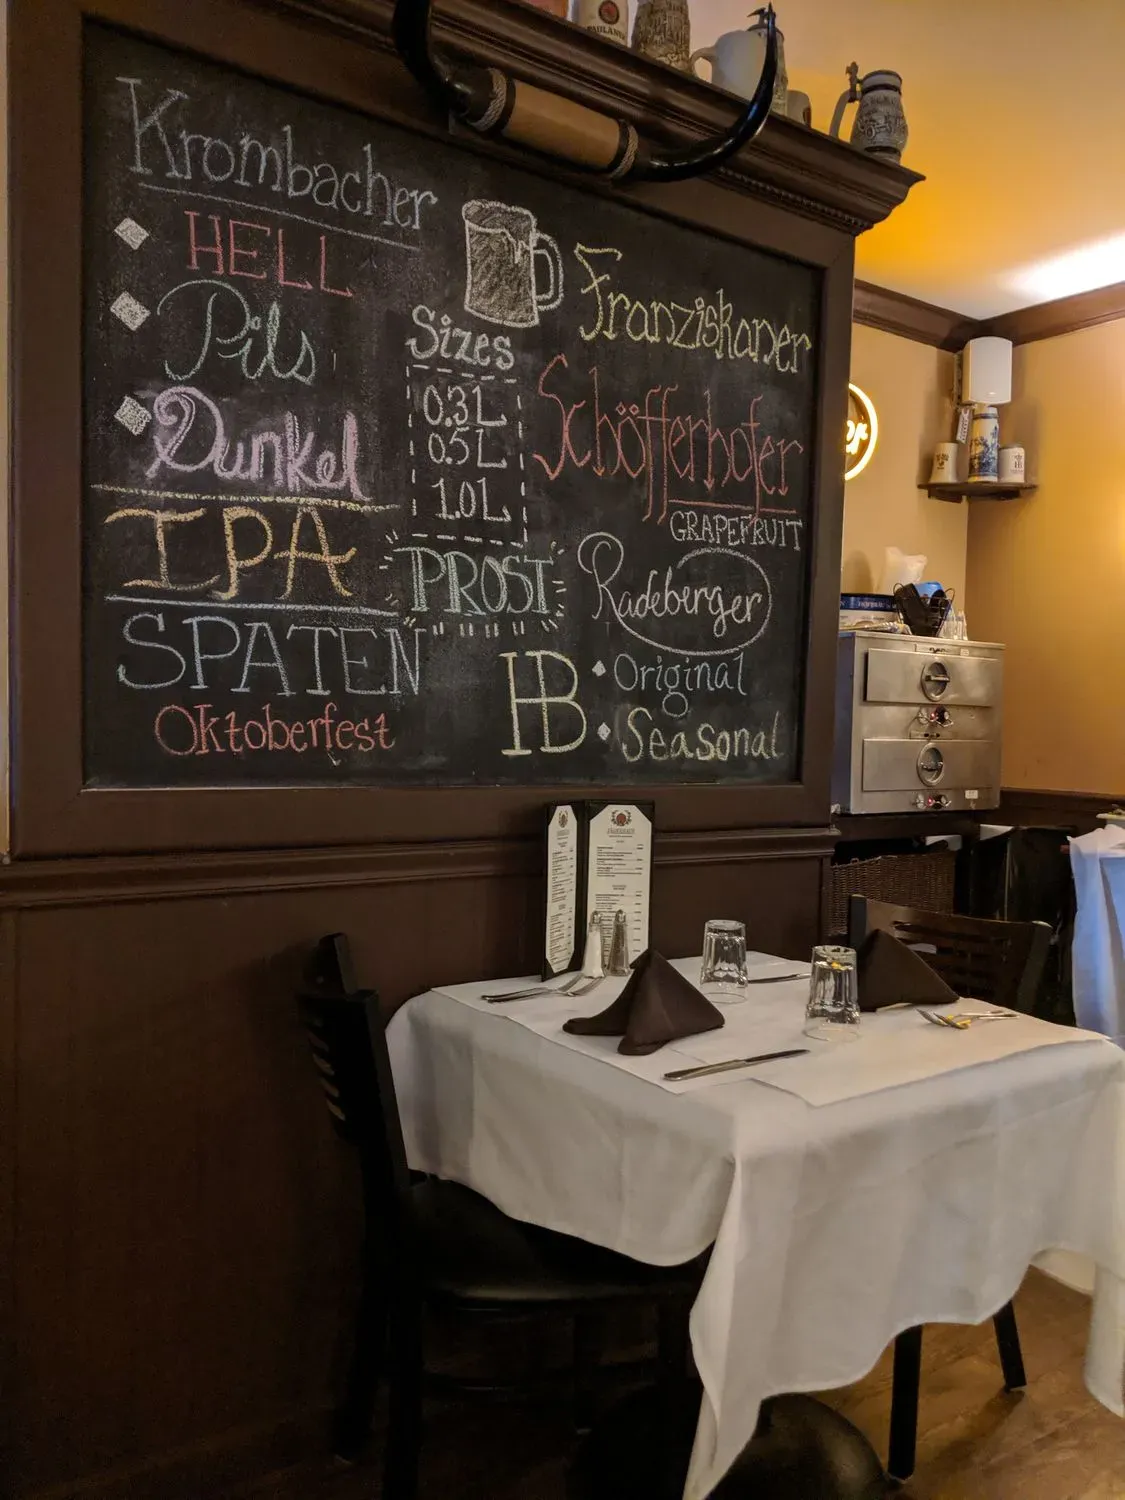 Krombacher
HELL
Pils
Dunkel
IPA
SPATEN
Oktoberfest
Sizes
0.3L
0.5L
1.0L
PROST
Franziskaner
Schöfferhofer
GRAPEFRUIT
Radeberger
HB
Original
Seasonal
PAULANER
er
HB